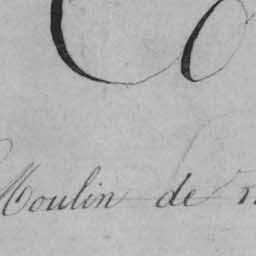 Co
Moulin de